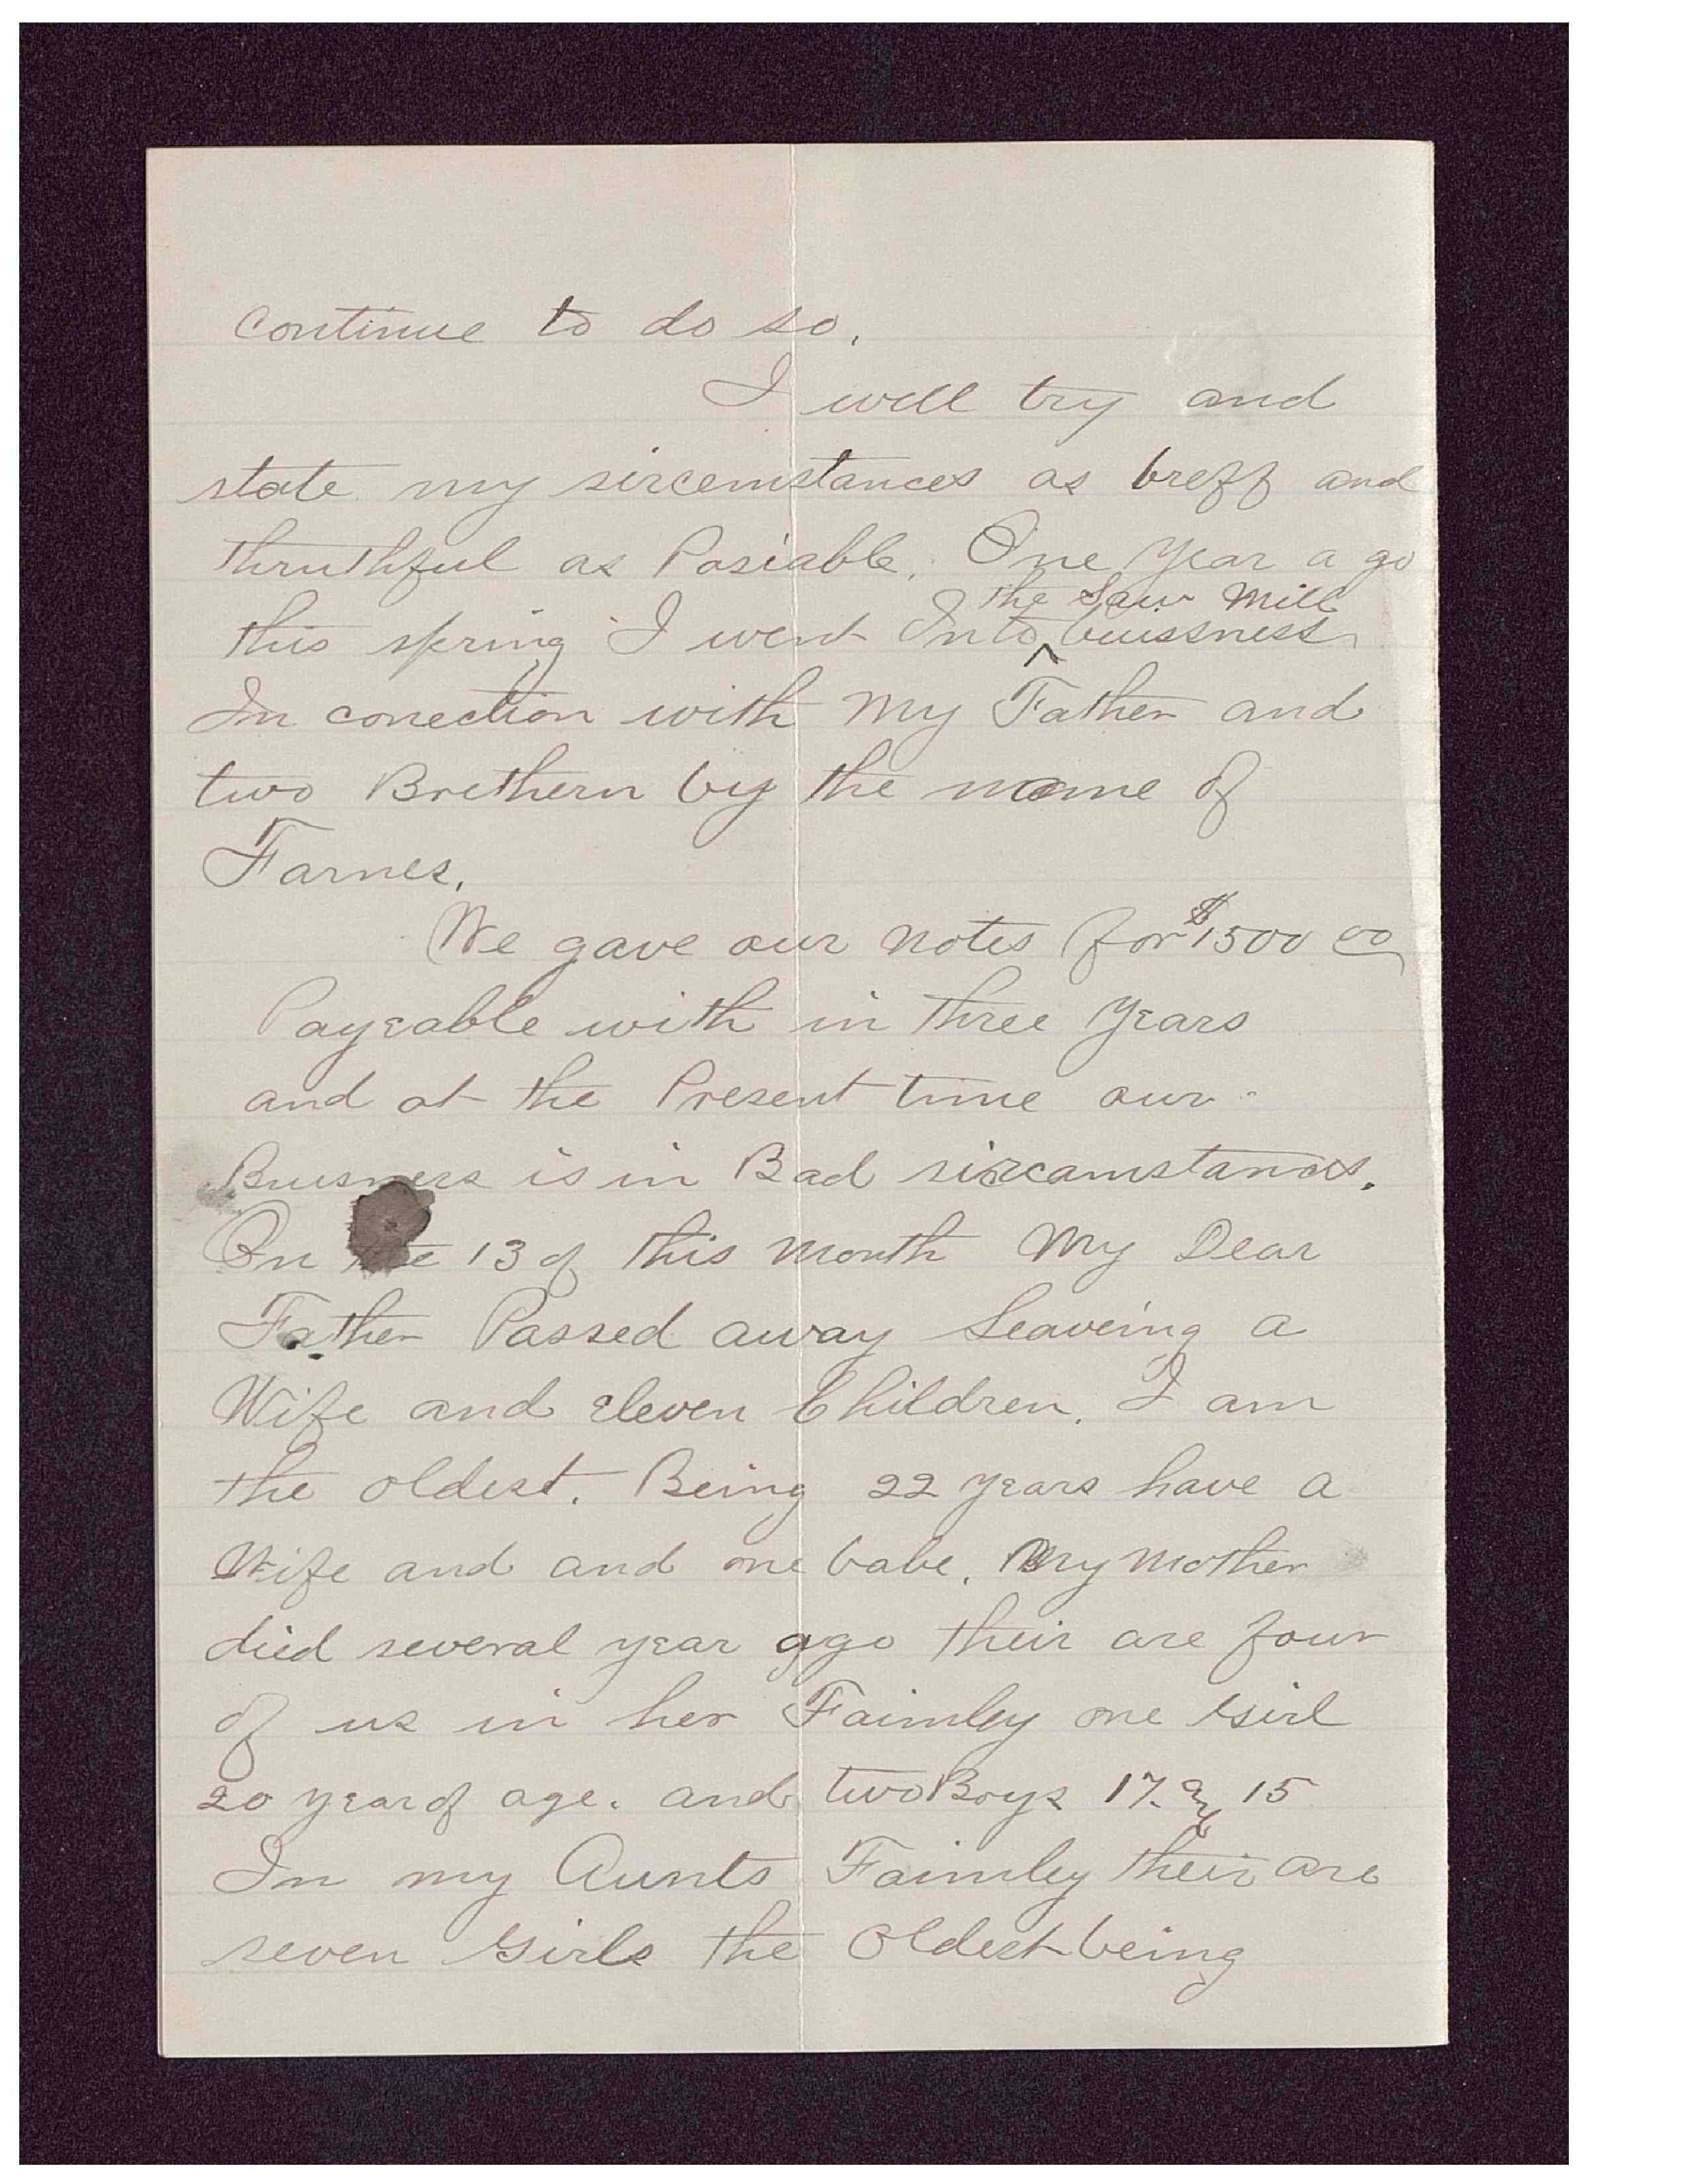 continue to do so.
I will try and
state my sircemstances as breff and
thruthful as Posiable. One year a go
the Saw Mill
this spring I went Into ^ buissness
In conection with My Father and
two Brethern by the name of
Farnes.
We gave our notes for $1500 00
Payeable with in three years
and at the Present time our
Buisness is in Bad sircamstances.
On the 13 of this month My Dear
Father Passed away Leaveing a
Wife and eleven Children. I am
the oldest. Being 22 years have a
Wife and and one babe. My Mother
died several year ago their are four
of us in her Faimley one Girl
20 year of age. and two Boys 17. & 15
In my Aunts Faimley their are
seven Girls the Oldest being